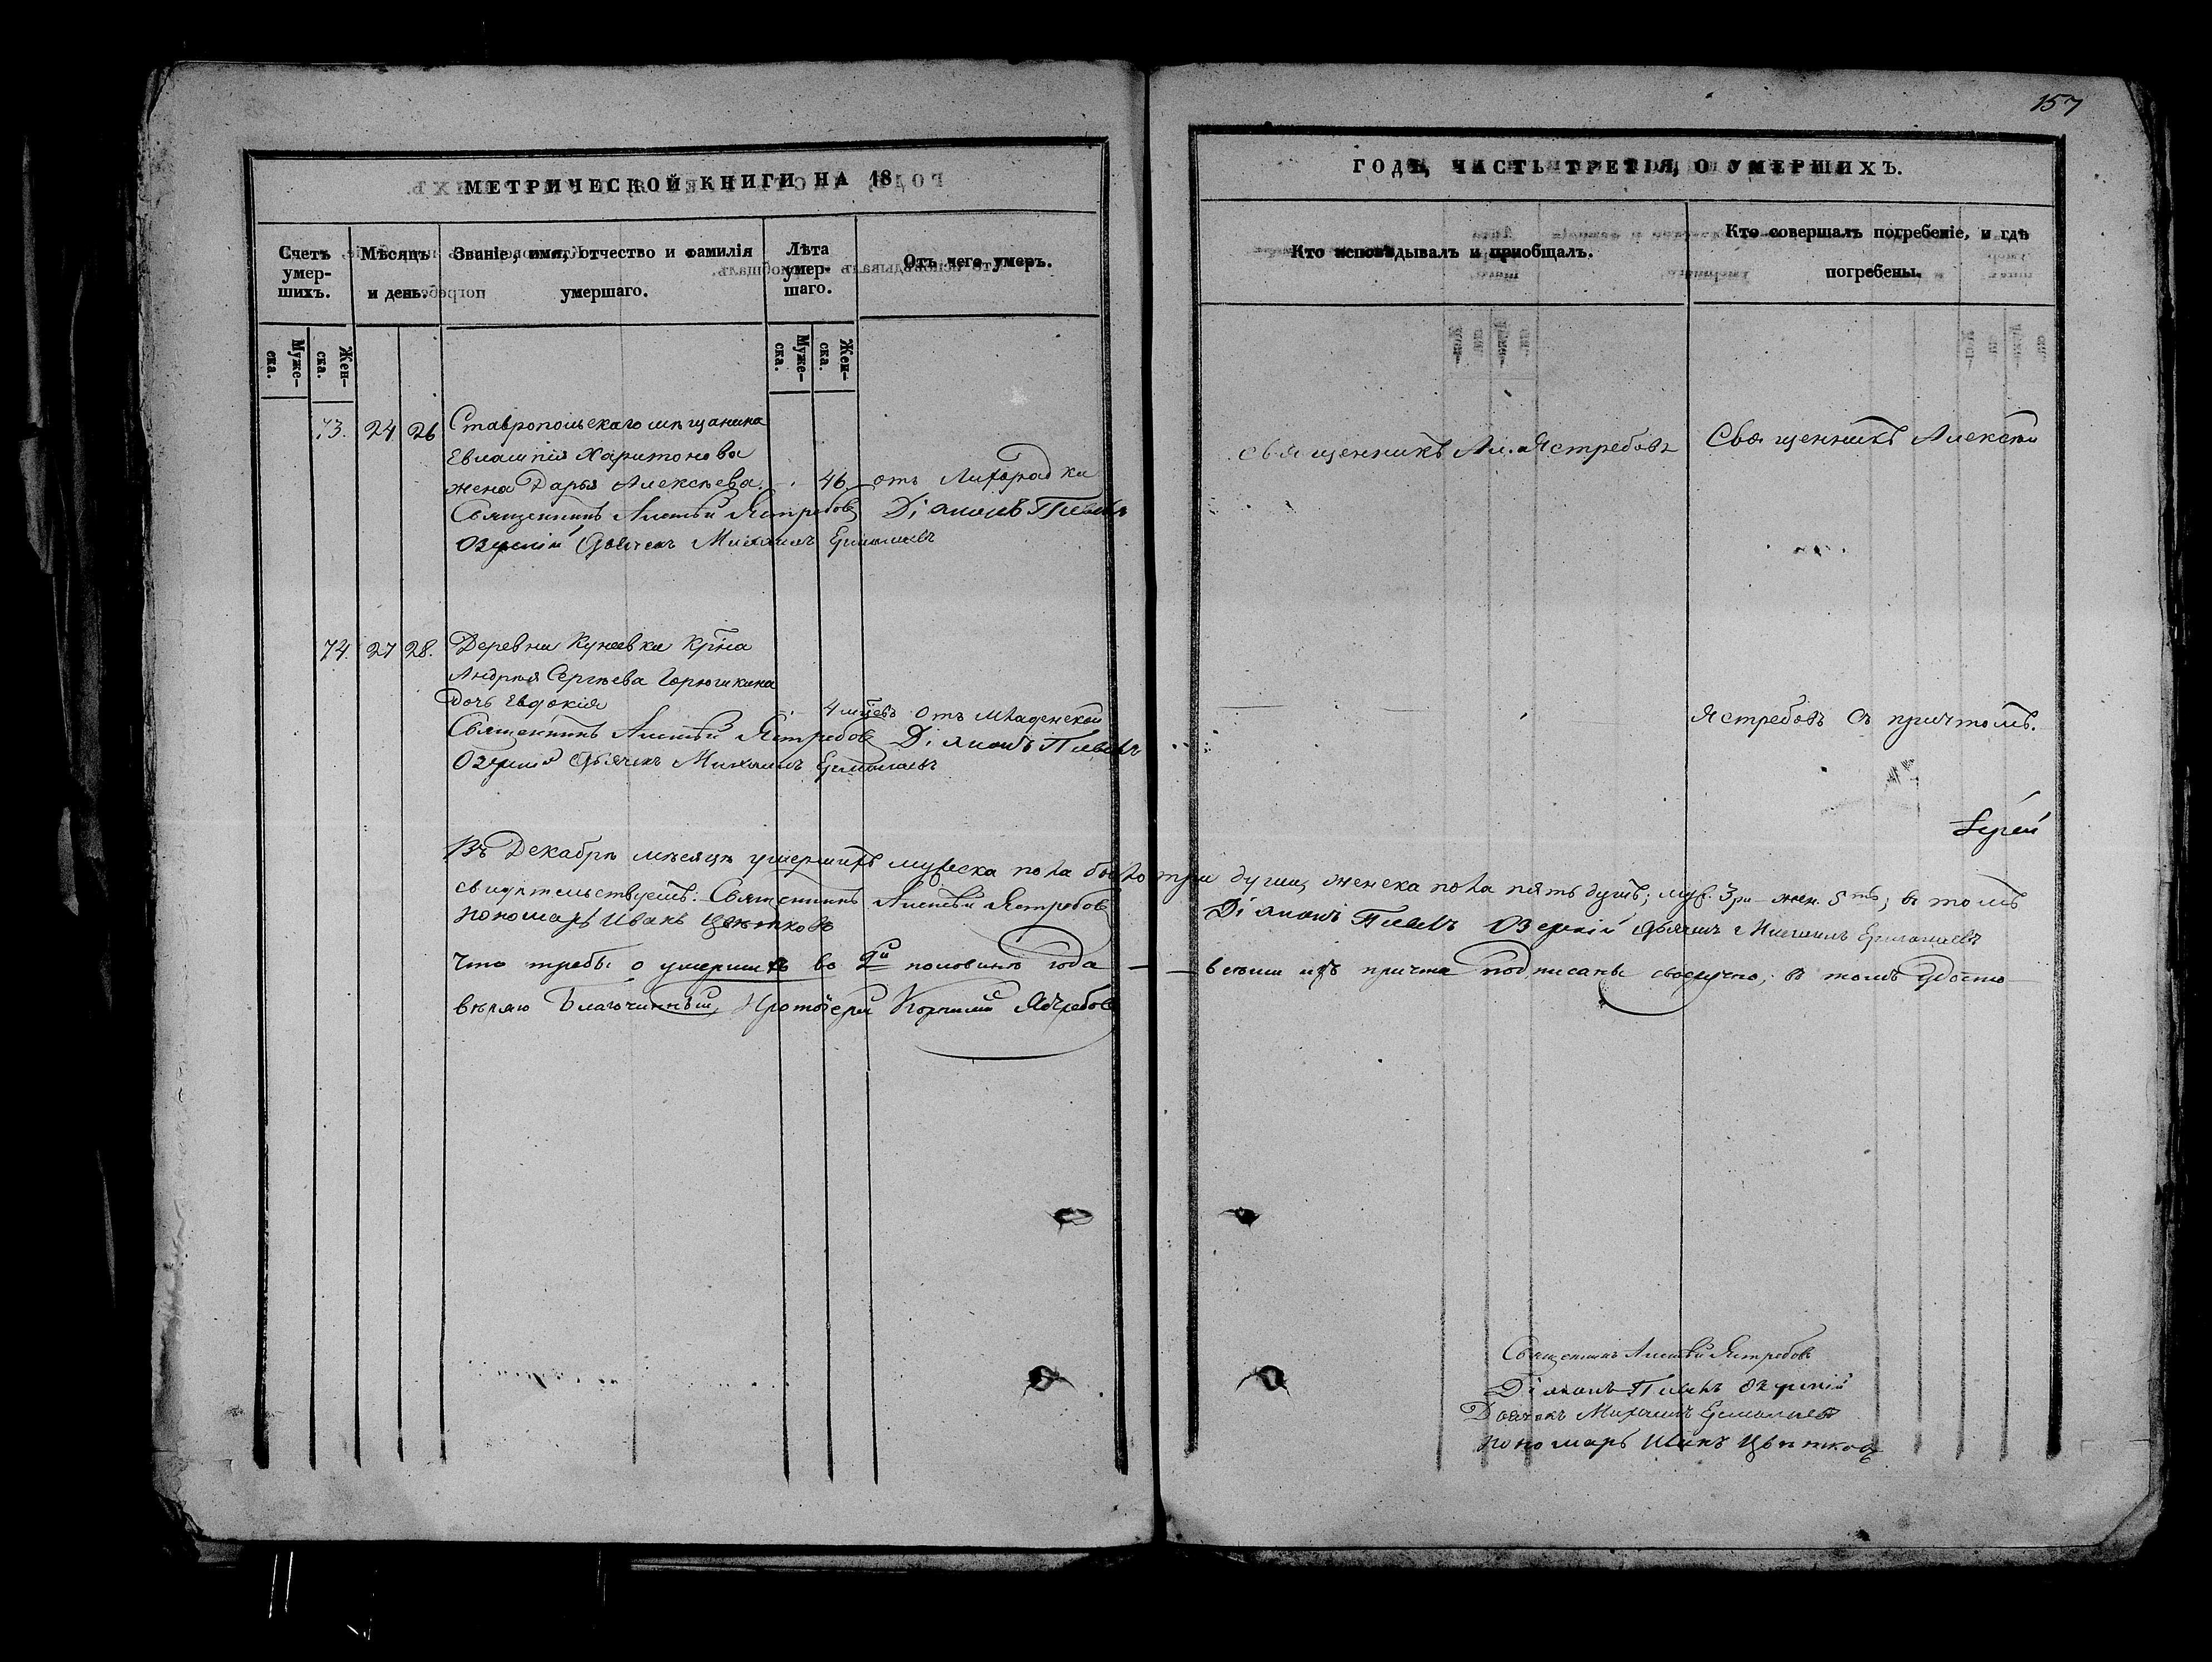 157
МЕТРИЧЕСКОЙ КНИГИ НА 18
ГОДЪ, ЧАСТЬ ТРЕТІЯ, О УМЕРШИХЪ.
Счетъ умер-шихъ.
Мѣсяцъ и день.
Званіе, имя, отчество и фамилія умершаго.
Лѣта умер-шаго.
Отъ чего умеръ.
Кто исповѣдывалъ и пріобщалъ.
Кто совершалъ погребеніе, и гдѣ погребены.
Муже-ска.
Жен-ска.
Муже-ска.
Жен-ска.
73. 24 26 Ставропольскаго мѣщанина
Евлампія Харитонова
жена Дарья Алексѣева. 46 отъ Лихорадки
священникъ Ал. Ястребовъ
Священникъ Алексѣй
Священникъ Алексѣй Ястребовъ Діаконъ Павелъ
Озерскій Дьячекъ Михаилъ Ермолаевъ
74. 27 28. Деревни Кунеевки кр̃нина
Андрея Сергѣева Горюшкина
дочь Евдокія 4 мц̃евъ отъ младенской
Ястребовъ съ причтомъ.
Священникъ Алексѣй Ястребовъ Діаконъ Павелъ
Озерскій Дьячекъ Михаилъ Ермолаевъ
Іерей
Въ Декабрѣ мѣсяцѣ умершихъ мужеска пола было три души, женска пола пять душъ; муж. 3ри жен. 5ть; въ томъ
свидѣтельствуемъ: Священникъ Алексѣй Ястребовъ Діаконъ Павелъ Озерскій Дьячекъ Михаилъ Ермолаевъ
пономарь Иванъ Цвѣтковъ
Что требы о умершихъ во 2й половинѣ года — — всѣми изъ причта подписаны своеручно, въ томъ удосто-
вѣряю Благочинный, Протоіерей Ястребовъ
Священникъ Алексѣй Ястребовъ
Діаконъ Павелъ Озерскій
Дьячекъ Михаилъ Ермолаевъ
пономарь Иванъ Цвѣтковъ